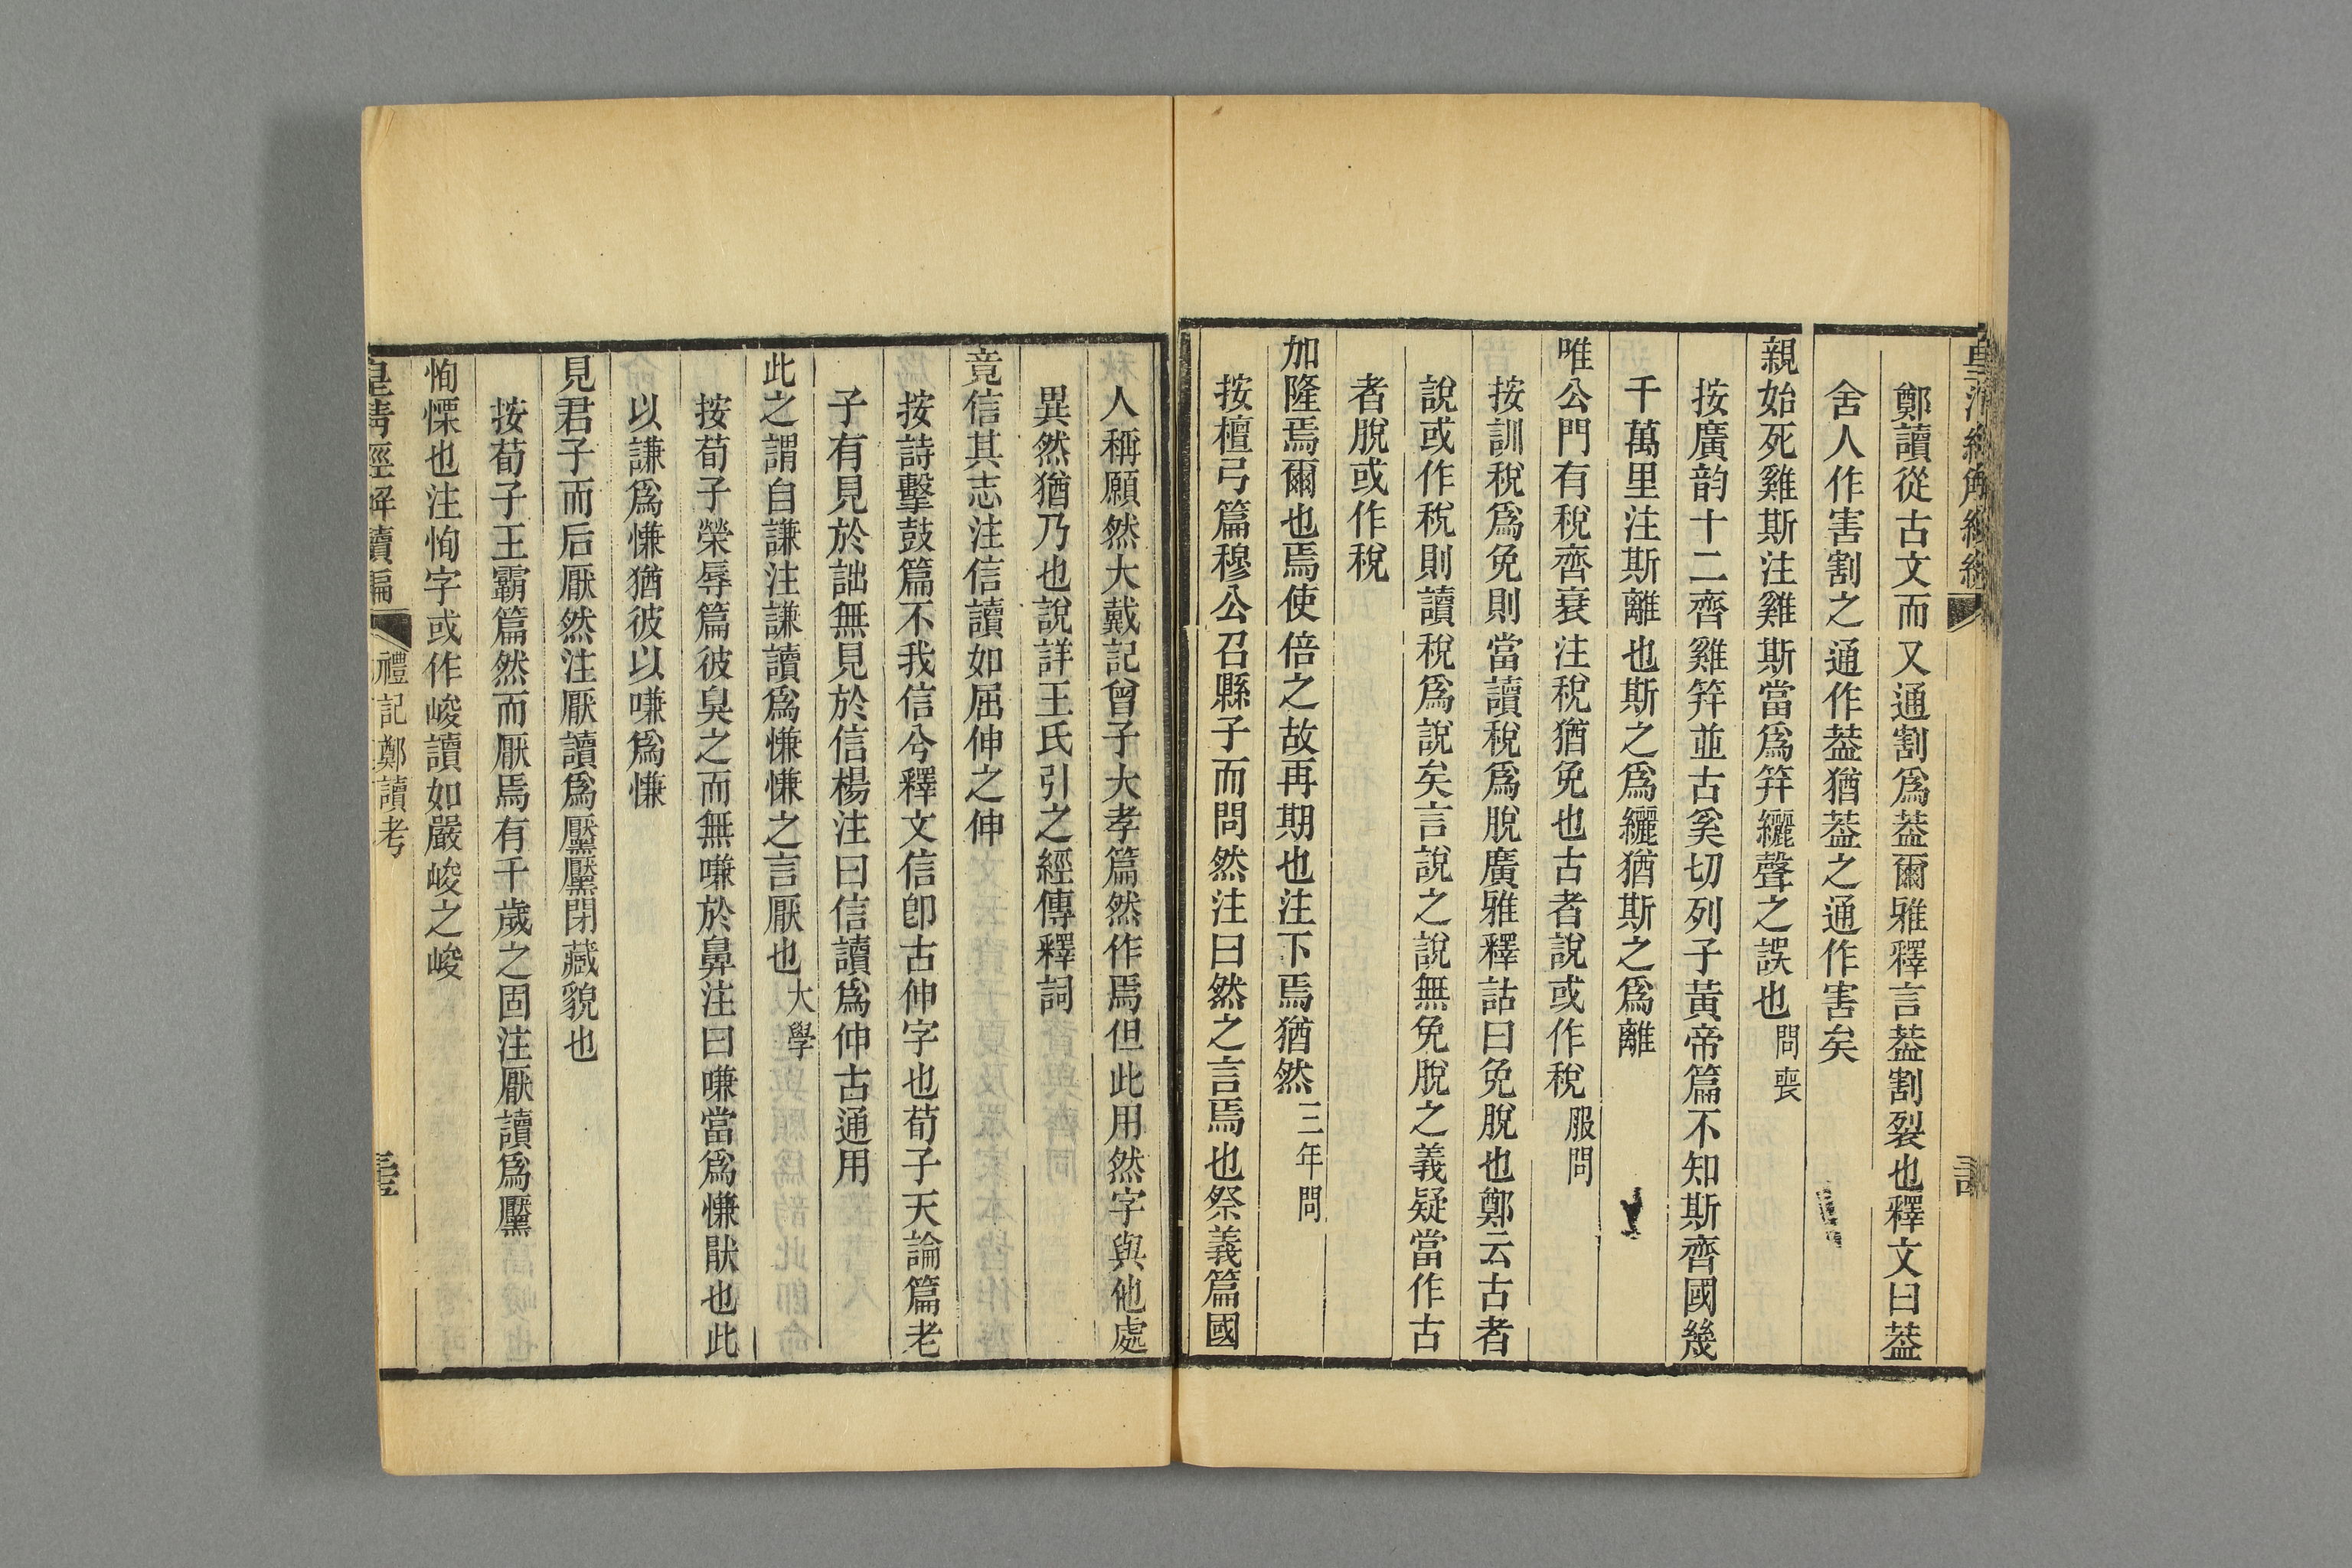 鄭讀從古文而又通割爲葢爾雅釋言葢割裂也釋文曰葢
舍人作害割之通作葢猶葢之通作害矣
親始死雞斯注雞斯當爲笄纚聲之誤也問喪
按廣韵十二齊雞笄並古奚切列子黃帝篇不知斯齊國幾
千萬里注斯離也斯之爲纚猶斯之爲離
唯公門有稅齊衰注稅猶免也古者說或作稅服問
按訓稅爲免則當讀稅爲脫廣雅釋詁曰免脫也鄭云古者
說或作稅則讀稅爲說矣言說之說無免脫之義疑當作古
者脫或作稅
加隆焉爾也焉使倍之故再期也注下焉猶然三年問
按檀弓篇穆公召縣子而問然注曰然之言焉也祭義篇國
人稱願然大戴記曾子大孝篇然作焉但此用然字與他處
異然猶乃也說詳王氏引之經傳釋詞
竟信其志注信讀如屈伸之伸
按詩擊鼓篇不我信兮釋文信卽古伸字也荀子天論篇老
子有見於詘無見於信楊注曰信讀爲伸古通用
此之謂自謙注謙讀爲慊慊之言厭也大學
按荀子榮辱篇彼臭之而無嗛於鼻注曰嗛當爲慊猒也此
以謙爲慊猶彼以嗛爲慊
見君子而后厭然注厭讀爲黶黶閉藏貌也
按荀子王霸篇然而厭焉有千歲之固注厭讀爲黶
恂慄也注恂字或作峻讀如嚴峻之峻
皇清經解續編 禮記鄭讀考